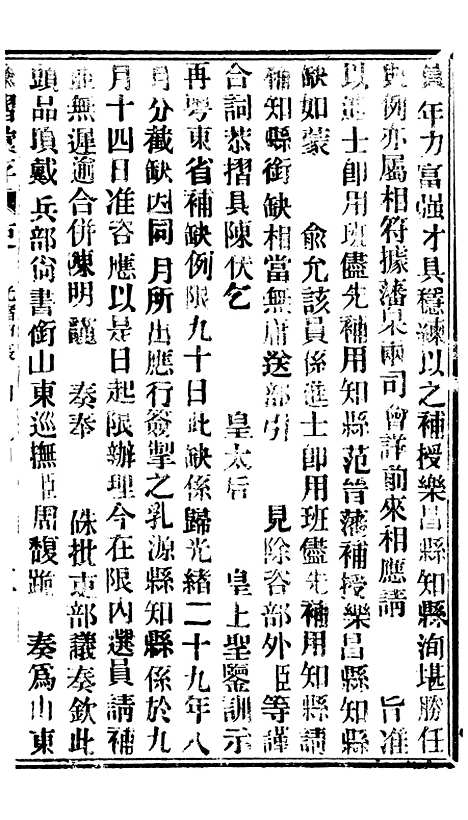 員年力富强才具穩練以之補授樂昌縣知縣洵堪勝任
與例亦屬相符據藩臬兩司會詳前來相應請 旨准
以進士即用班儘先補用知縣范晉藩補授樂昌縣知縣
缺如蒙 俞允該員係進士即用班儘先補用知縣請
補知縣銜缺相當無庸送部引 見除咨部外臣等謹
合詞恭摺具陳伏乞 皇太后 皇上聖鑒訓示
再粵東省補缺例限九十日此缺係歸光緒二十九年八
月分截缺因同月所出應行簽掣之乳源縣知縣係於九
月十四日准咨應以是日起限辦理今在限内選員請補
並無遲逾合併陳明謹 奏奉 硃批吏部議奏欽此
頭品頂戴兵部尚書銜山東巡撫臣周馥跪 奏爲山東